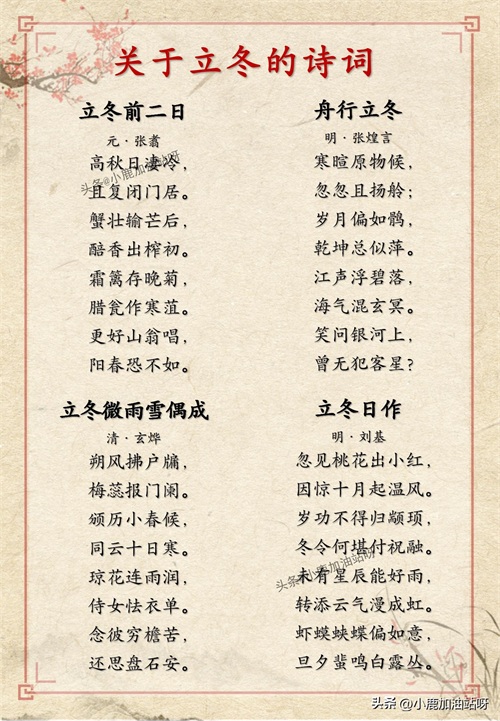 关于立冬的诗词
立冬前二日
元·张翥
高秋日凄冷，
且复闭门居。
蟹壮输芒后，
醅香出榨初。
霜篱存晚菊，
腊瓮作寒菹。
更好山翁唱，
阳春恐不如。
舟行立冬
明·张煌言
寒暄原物候，
忽忽且扬舲；
岁月偏如鹘，
乾坤总似萍。
江声浮碧落，
海气混玄冥。
笑问银河上，
曾无犯客星?
立冬微雨雪偶成
清·玄烨
朔风拂户牖，
梅蕊报门阑。
颁历小春候，
同云十日寒。
琼花连雨润，
侍女怯衣单。
念彼穷檐苦，
还思盘石安。
立冬日作
明·刘基
忽见桃花出小红，
因惊十月起温风。
岁功不得归颛顼，
冬令何堪付祝融。
未有星辰能好雨，
转添云气漫成虹。
虾蟆蛱蝶偏如意，
旦夕蜚鸣白露丛。
头条@小鹿加油站呀
头条@小鹿加油站呀
头条 @小鹿加油站呀